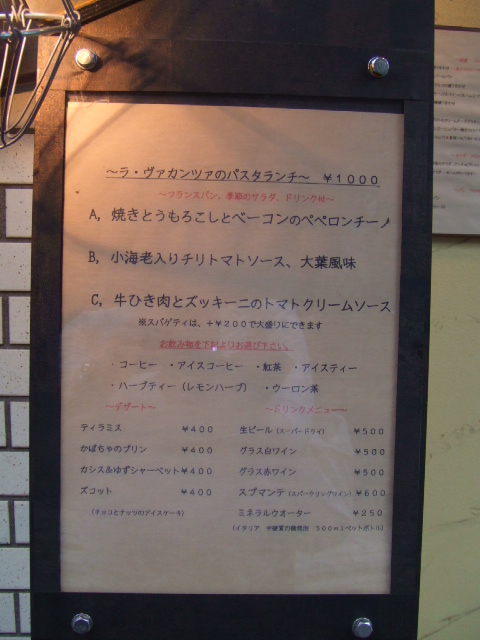 ～ラ・ヴァカンツァのパスタランチ～ ￥１０００
～フランスパン、季節のサラダ、ドリンク付～
A, 焼きとうもろこしとベーコンのペペロンチーノ
B, 小海老入りチリトマトソース、大葉風味
C, 牛ひき肉とズッキーニのトマトクリームソース
※スパゲティは、＋￥２００で大盛りにできます
お飲み物を下記よりお選び下さい。
・コーヒー ・アイスコーヒー ・紅茶 ・アイスティー
・ハーブティー（レモンハーブ） ・ウーロン茶
～デザート～
ティラミス ￥４００
かぼちゃのプリン ￥４００
カシス＆ゆずシャーベット ￥４００
ズコット ￥４００
（チョコとナッツのアイスケーキ）
～ドリンクメニュー～
生ビール（スーパードライ） ￥５００
グラス白ワイン ￥５００
グラス赤ワイン ￥５００
スプマンテ（スパークリングワイン） ￥６００
ミネラルウオーター ￥２５０
（イタリア ５００ｍｌペットボトル）